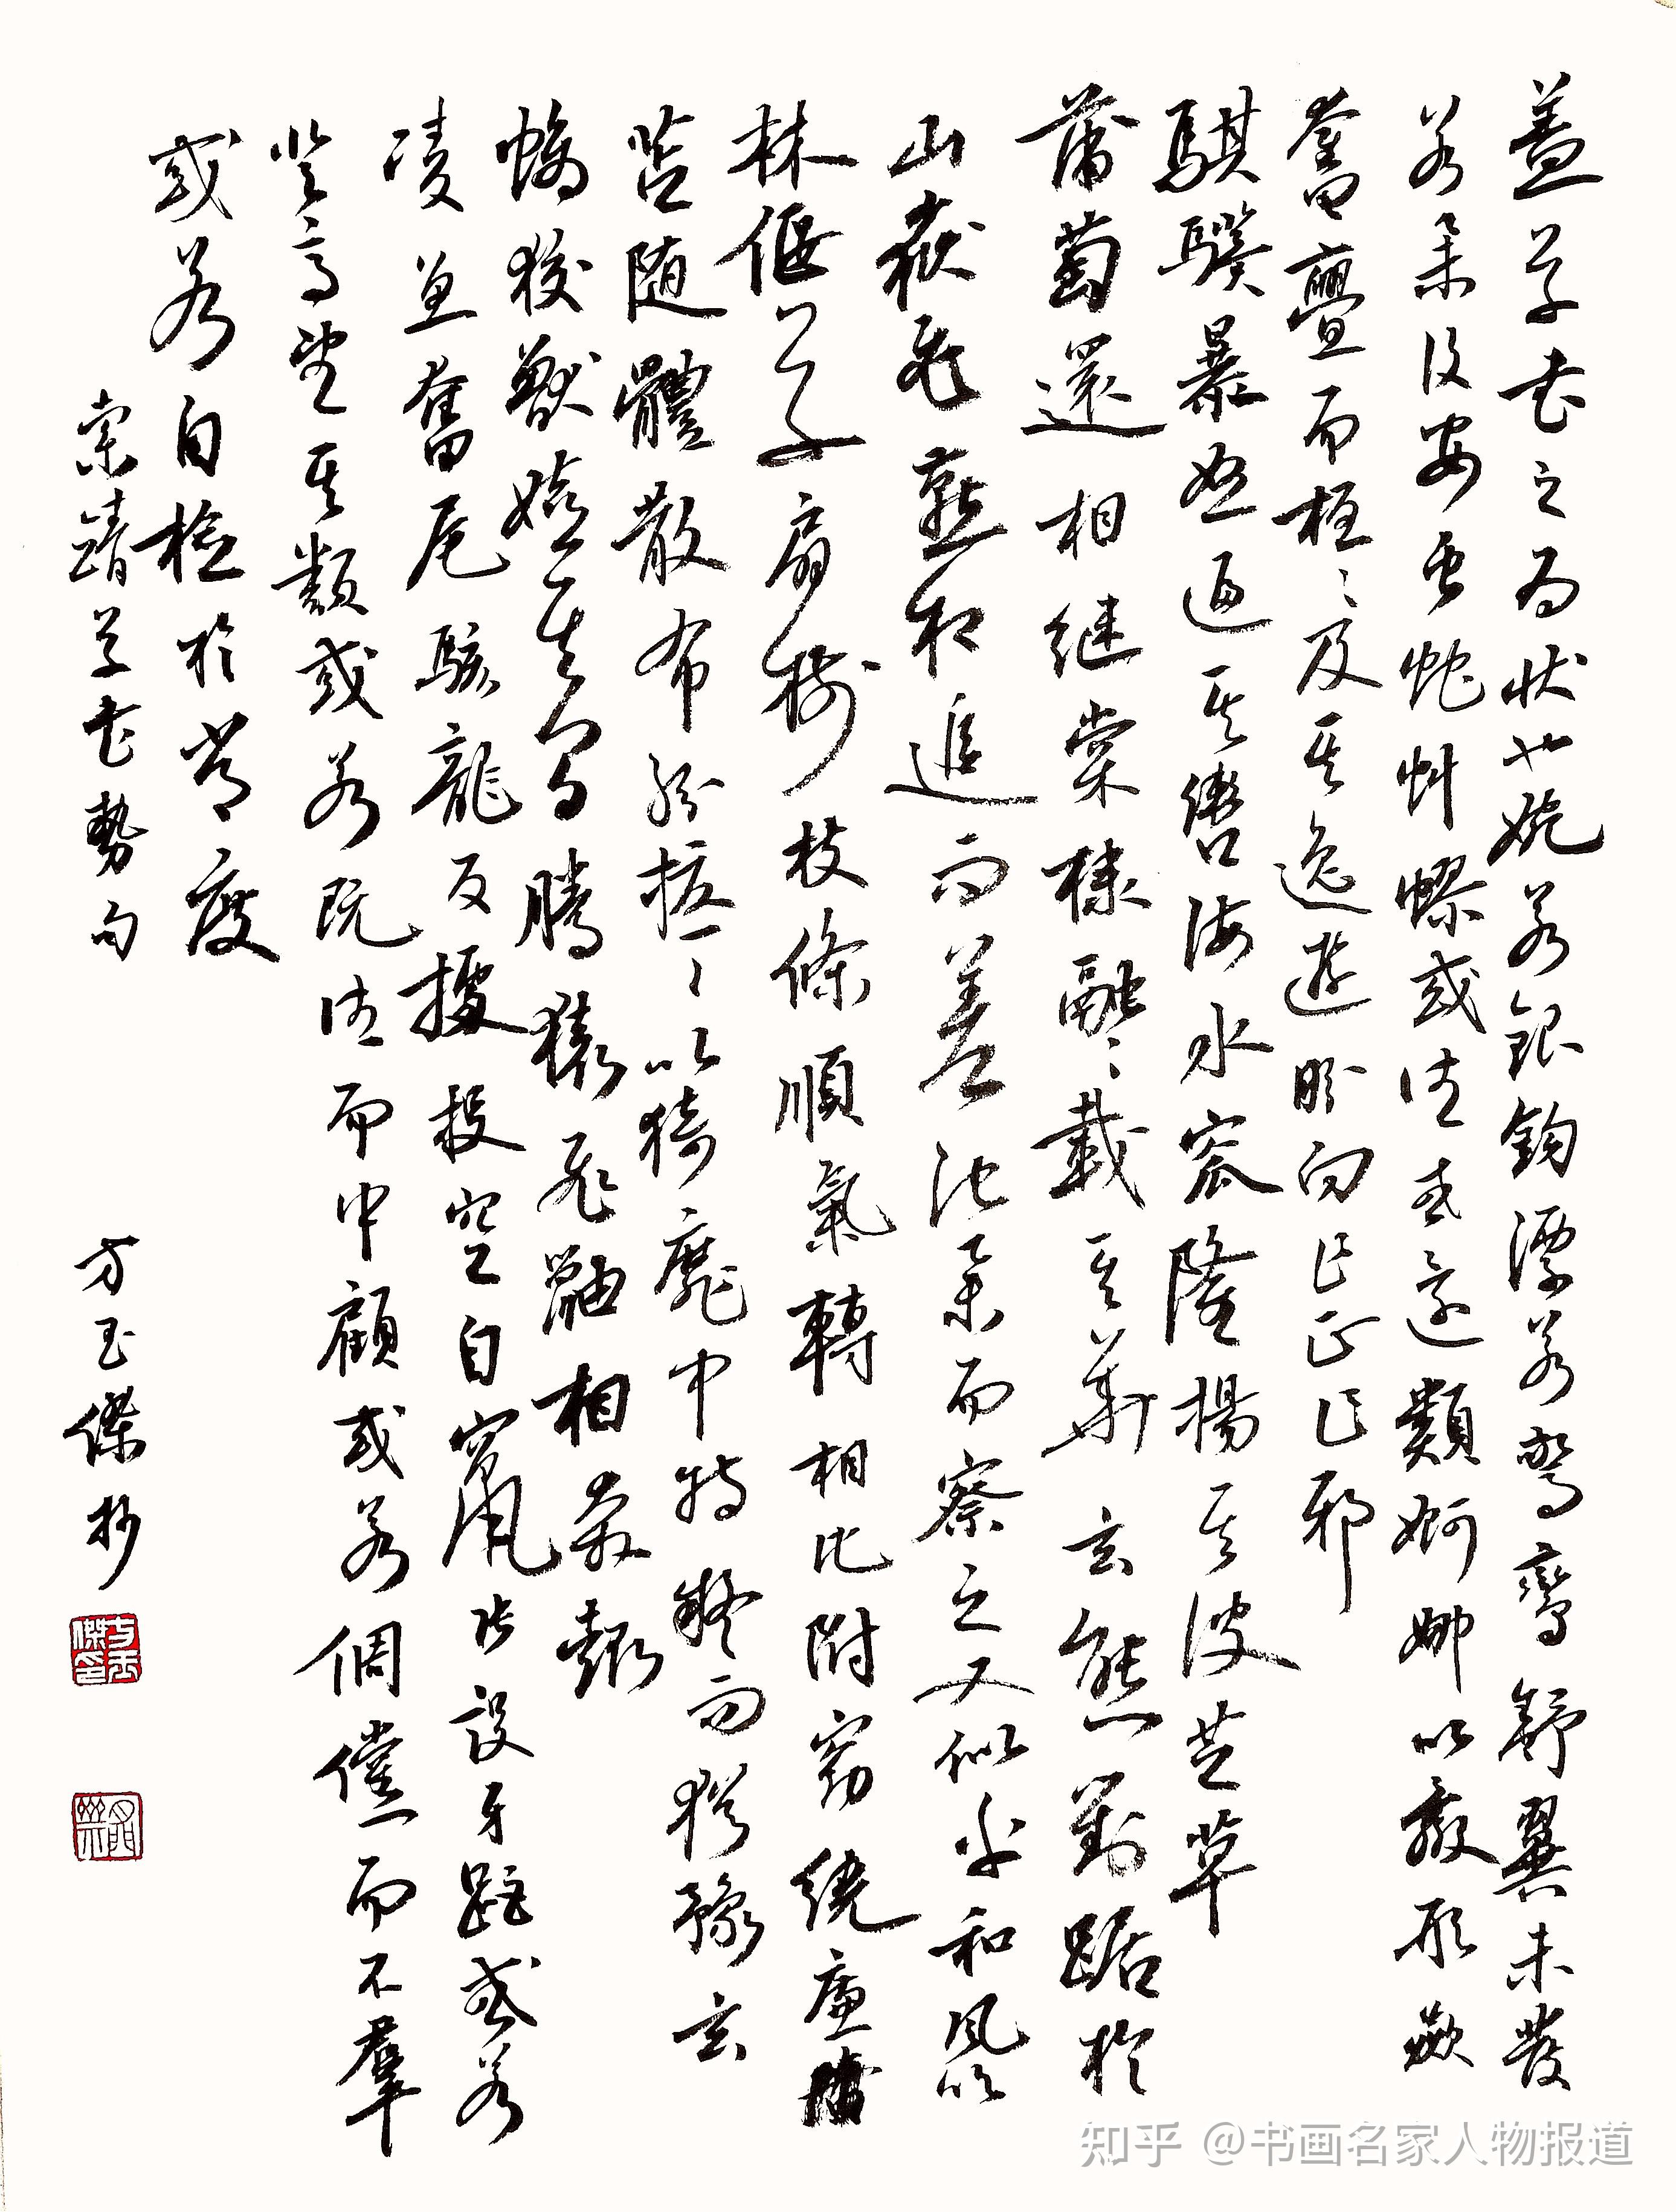 蓋草書之為狀也婉若銀鉤漂若驚鸞舒翼未發
若舉復安蟲蛇虯蟉或往或還類婀娜以羸形欻
奮亹而桓〻及其逸遊盼向乍正乍邪
騏驥暴怒逼其轡海水窊隆揚其波芝草
蒲萄還相繼棠棣融〻載其華玄熊對踞於
山嶽飛燕相追而差池舉而察之又似乎和風吹
林偃草扇樹枝條順氣轉相比附窈繞廉苫
苫随體散布紛擾〻以猗靡中持疑而猶豫玄
螭狡獸嬉其間騰猿飛鼬相奔趣
凌魚奮尾駭龍反據投空自竄張設牙距或若
登高望其類或若既往而中顧或若倜儻而不羣
或若自檢於常度
索靖草書勢句
方玉傑抄
方玉傑印
知乎 @书画名家人物报道